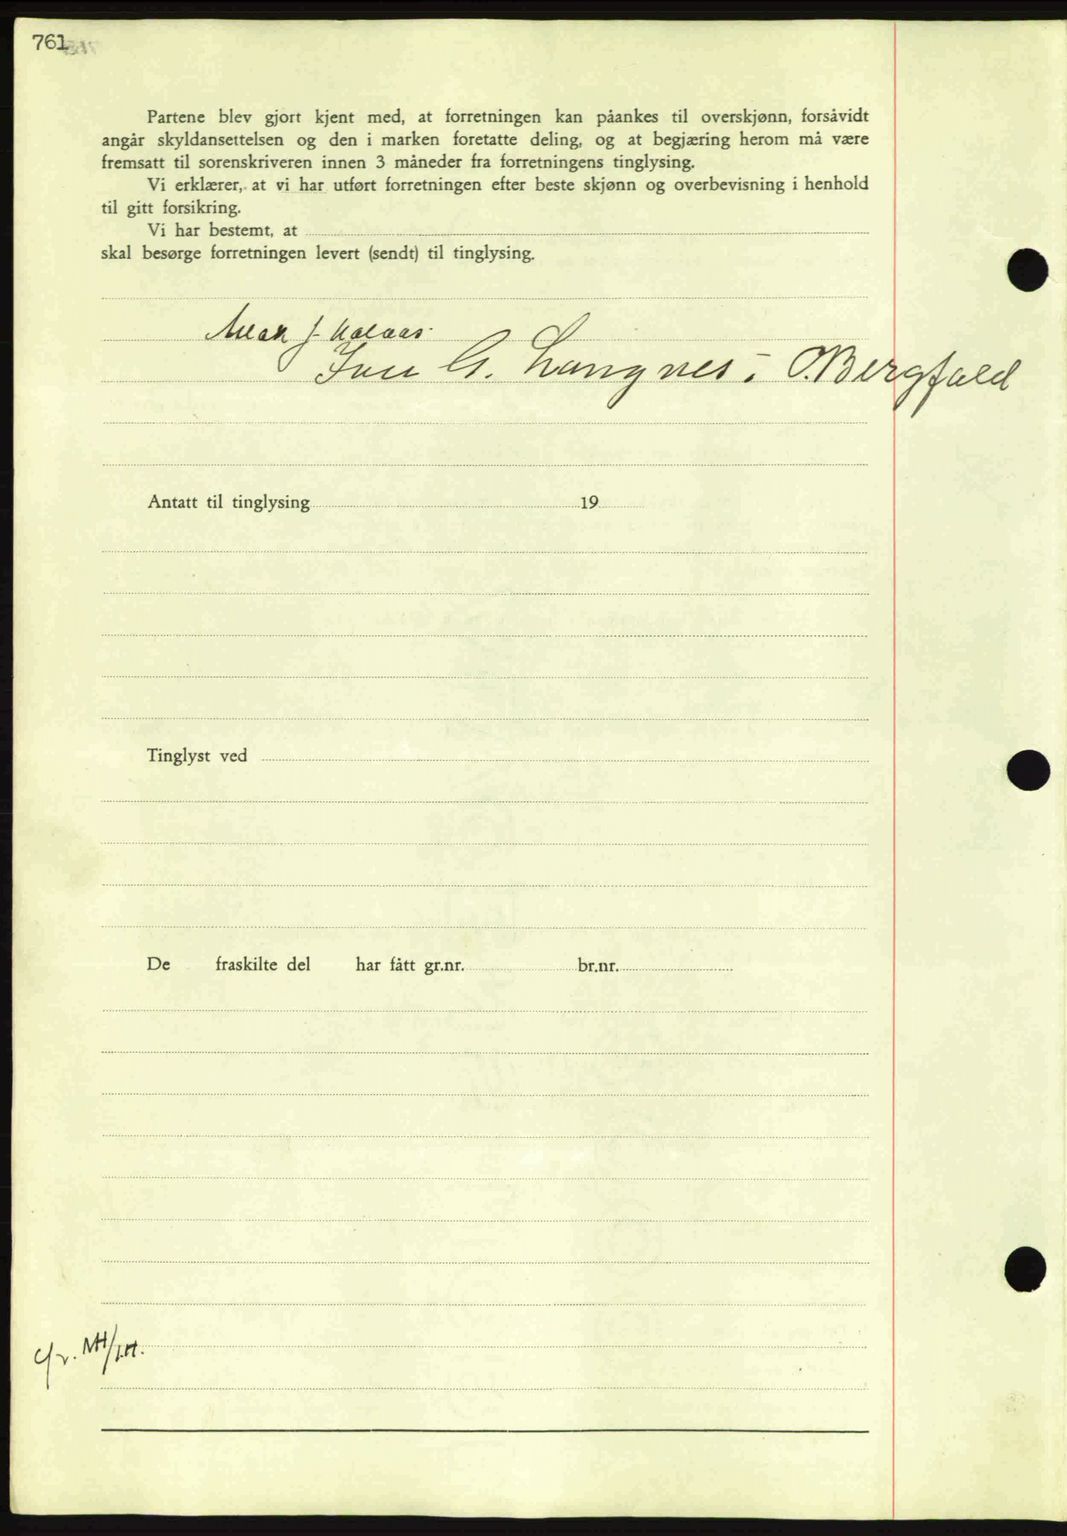 761
Partene blev gjort kjent med, at forretningen kan påankes til overskjønn, forsåvidt
angår skyldansettelsen og den i marken foretatte deling, og at begjæring herom må være
fremsatt til sorenskriveren innen 3 måneder fra forretningens tinglysing.
Vi erklærer, at vi har utført forretningen efter beste skjønn og overbevisning i henhold
til gitt forsikring.
Vi har bestemt, at
skal besørge forretningen levert (sendt) til tinglysing.
J.
G. Langnes O. Bergfald
Antatt til tinglysing 19
Tinglyst ved
De fraskilte del har fått gr.nr. br.nr.